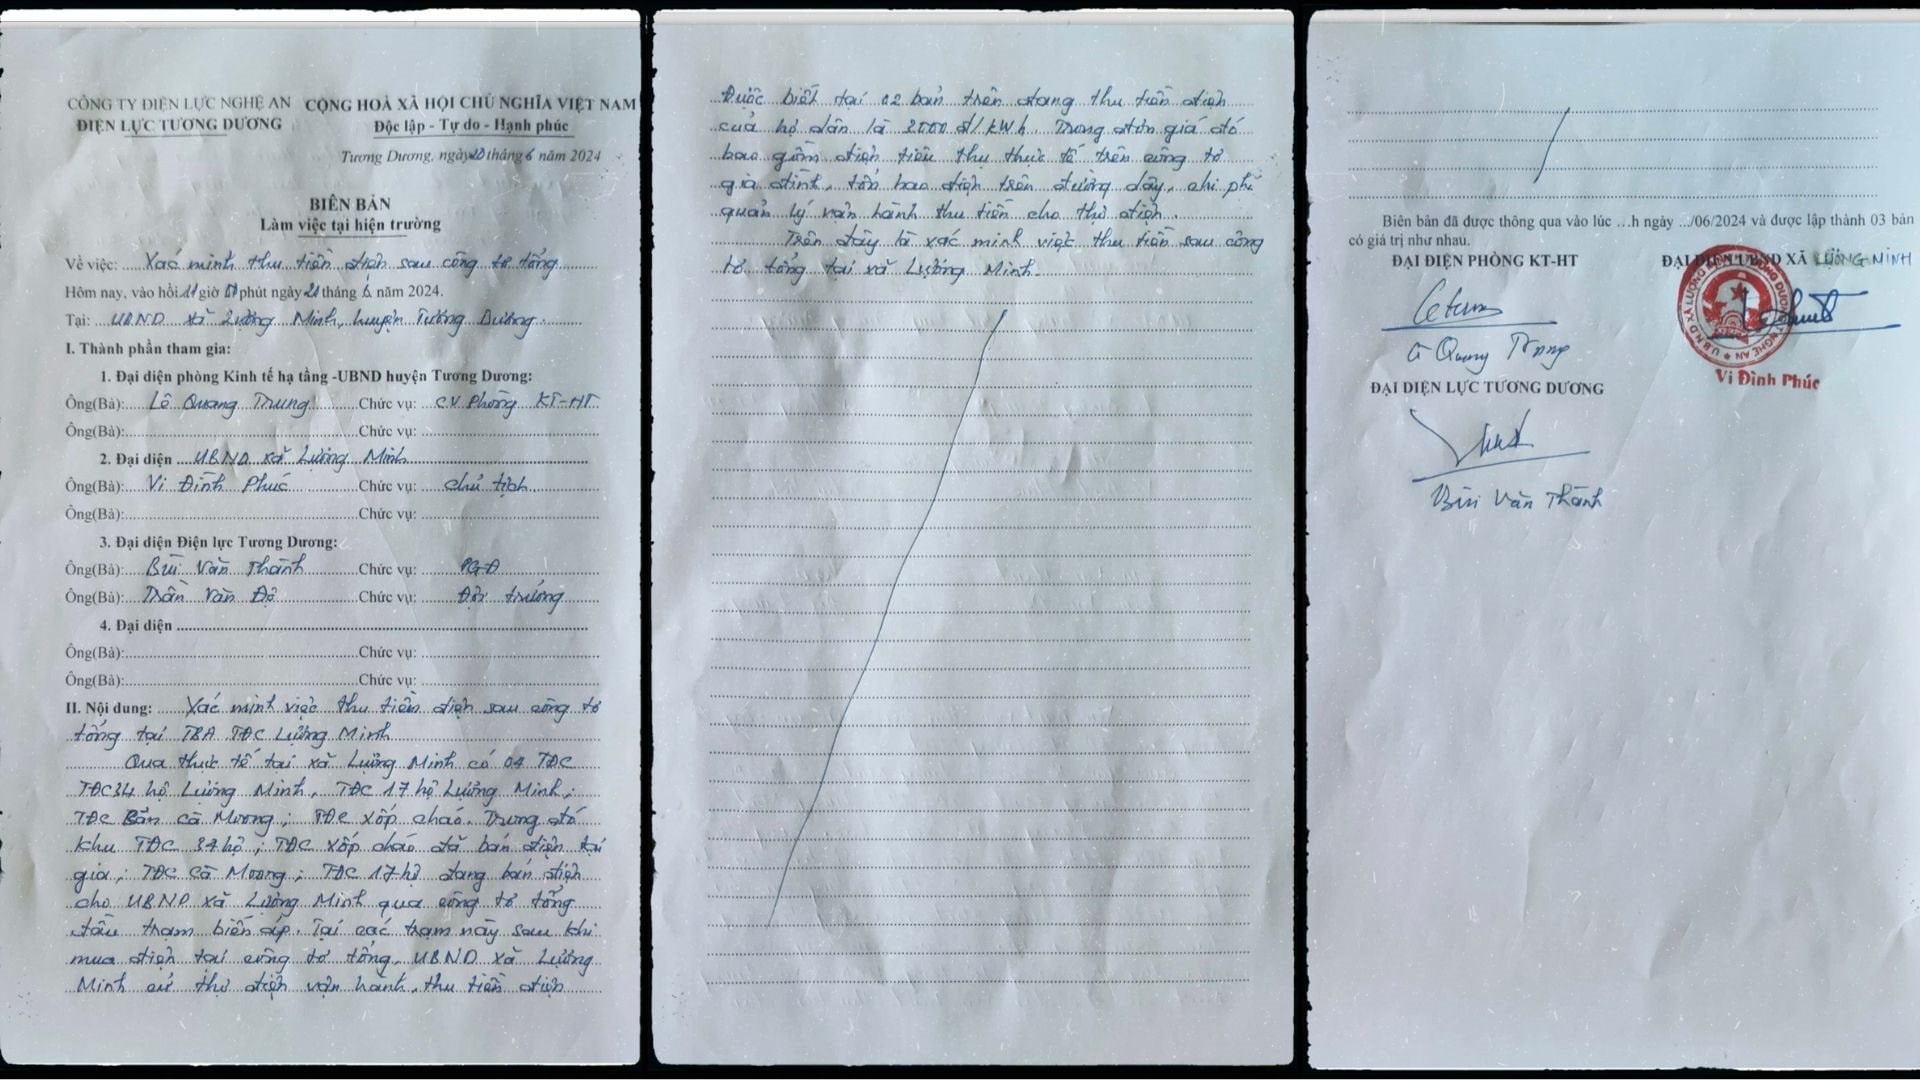 CÔNG TY ĐIỆN LỰC NGHỆ AN
ĐIỆN LỰC TƯƠNG DƯƠNG
CỘNG HOÀ XÃ HỘI CHỦ NGHĨA VIỆT NAM
Độc lập - Tự do - Hạnh phúc
Tương Dương, ngày 20 tháng 6 năm 2024
BIÊN BẢN
Làm việc tại hiện trường
Về việc: Xác minh thu tiền điện sau công tơ tổng
Hôm nay, vào hồi 11 giờ phút ngày 21 tháng 6 năm 2024.
Tại: UBND xã Lượng Minh, huyện Tương Dương.
I. Thành phần tham gia:
1. Đại diện phòng Kinh tế hạ tầng -UBND huyện Tương Dương:
Ông(Bà): Lê Quang Trung Chức vụ: C.V. Phòng KT-HT
Ông(Bà): Chức vụ:
2. Đại diện UBND xã Lượng Minh
Ông(Bà): Vi Đình Phúc Chức vụ: chủ tịch
Ông(Bà): Chức vụ:
3. Đại diện Điện lực Tương Dương:
Ông(Bà): Bùi Văn Thành Chức vụ: PGĐ
Ông(Bà): Trần Văn Độ Chức vụ: Đội trưởng
4. Đại diện
Ông(Bà): Chức vụ:
Ông(Bà): Chức vụ:
II. Nội dung: Xác minh việc thu tiền điện sau công tơ
tổng tại TBA TĐC Lượng Minh
Qua thực tế tại xã Lượng Minh có 04 TĐC
TĐC 34 hộ Lượng Minh, TĐC 17 hộ Lượng Minh;
TĐC Bản cà Moong; TĐC xốp cháo. Trong đó
khu TĐC 34 hộ; TĐC xốp cháo đã bán điện tại
gia; TĐC Cà Moong; TĐC 17 hộ đang bán điện
cho UBND xã Lượng Minh qua công tơ tổng
đầu trạm biến áp. Tại các trạm này sau khi
mua điện tại công tơ tổng, UBND xã Lượng
Minh cử thợ điện vận hành, thu tiền điện
Được biết tại 02 bản trên đang thu tiền điện
của hộ dân là 3000 đ/kWh. Trong đơn giá đó
bao gồm điện tiêu thụ thực tế trên công tơ
gia đình, tổn hao điện trên đường dây, chi phí
quản lý vận hành thu tiền cho thợ điện.
Trên đây là xác minh việc thu tiền sau công
tơ tổng tại xã Lượng Minh.
Biên bản đã được thông qua vào lúc ...h ngày .../06/2024 và được lập thành 03 bản
có giá trị như nhau.
ĐẠI DIỆN PHÒNG KT-HT
ĐẠI DIỆN UBND XÃ LƯỢNG MINH
Lê Quang Trung
Vi Đình Phúc
ĐẠI DIỆN LỰC TƯƠNG DƯƠNG
Bùi Văn Thành